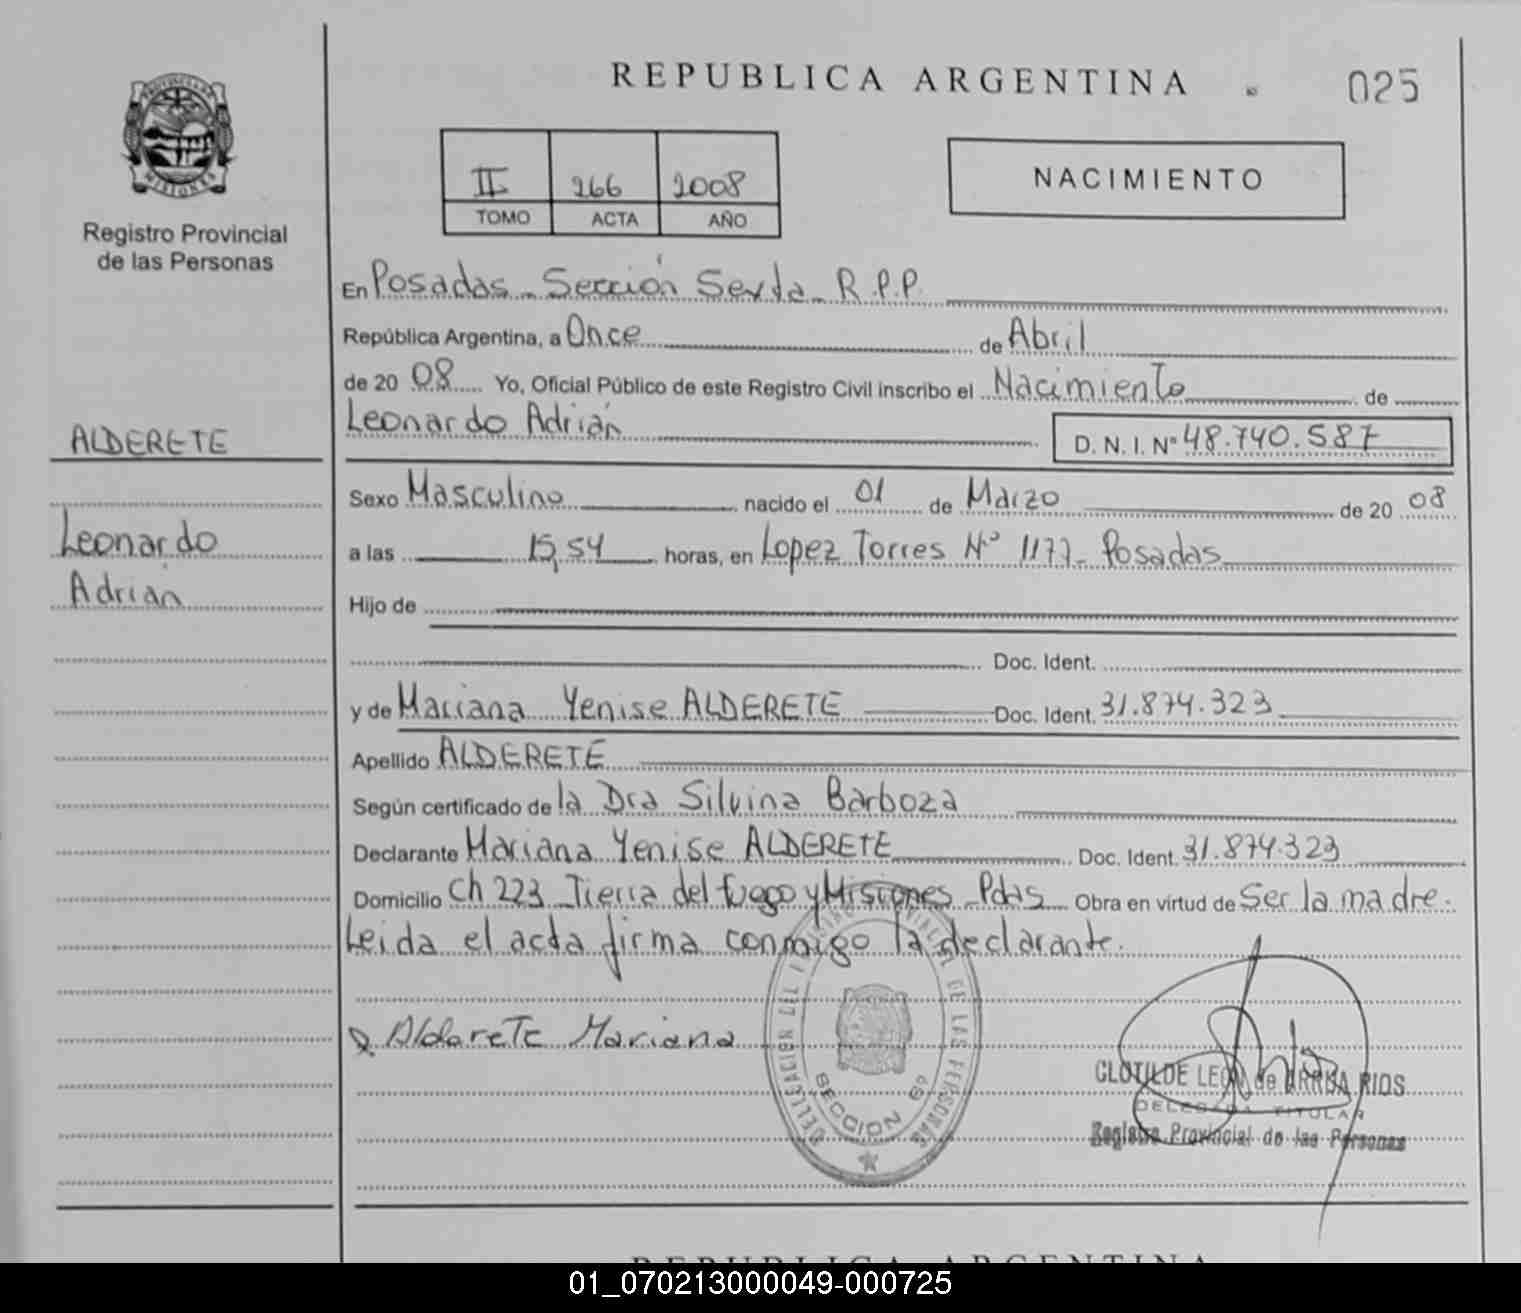 REPUBLICA ARGENTINA
025
PROVINCIA DE
MISIONES
Registro Provincial
de las Personas
II 266 2008
TOMO ACTA AÑO
NACIMIENTO
En Posadas - Sección Sexta - R.P.P.
República Argentina, a Once de Abril
de 20 08 Yo, Oficial Público de este Registro Civil inscribo el Nacimiento de
Leonardo Adrián D. N. I. Nº 48.740.587
ALDERETE
Leonardo
Adrián
Sexo Masculino nacido el 01 de Marzo de 20 08
a las 15,54 horas, en Lopez Torres Nº 1177- Posadas
Hijo de
Doc. Ident.
y de Mariana Yenise ALDERETE Doc. Ident. 31.874.323
Apellido ALDERETE
Según certificado de la Dra Silvina Barboza
Declarante Mariana Yenise ALDERETE Doc. Ident. 31.874.323
Domicilio Ch 223 Tierra del fuego y Misiones - Pdas Obra en virtud de Ser la madre.
Leida el acta firma conmigo la declarante.
Alderete Mariana
DELEGACION DEL REGISTRO PROVINCIAL DE LAS PERSONAS
SECCION 6º
CLOTILDE LEON de ARRUA RIOS
DELEGADA TITULAR
Registro Provincial de las Personas
REPUBLICA ARGENTINA
01_070213000049-000725